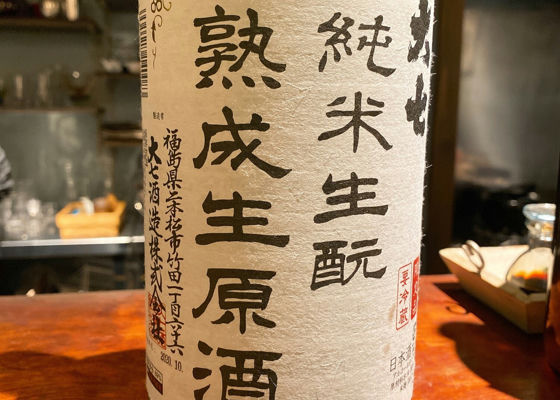 大七
純米生酛
熟成生原酒
要冷蔵
日本酒
製造者
福島県二本松市竹田一丁目六十六
大七酒造株式会社
2020.10.